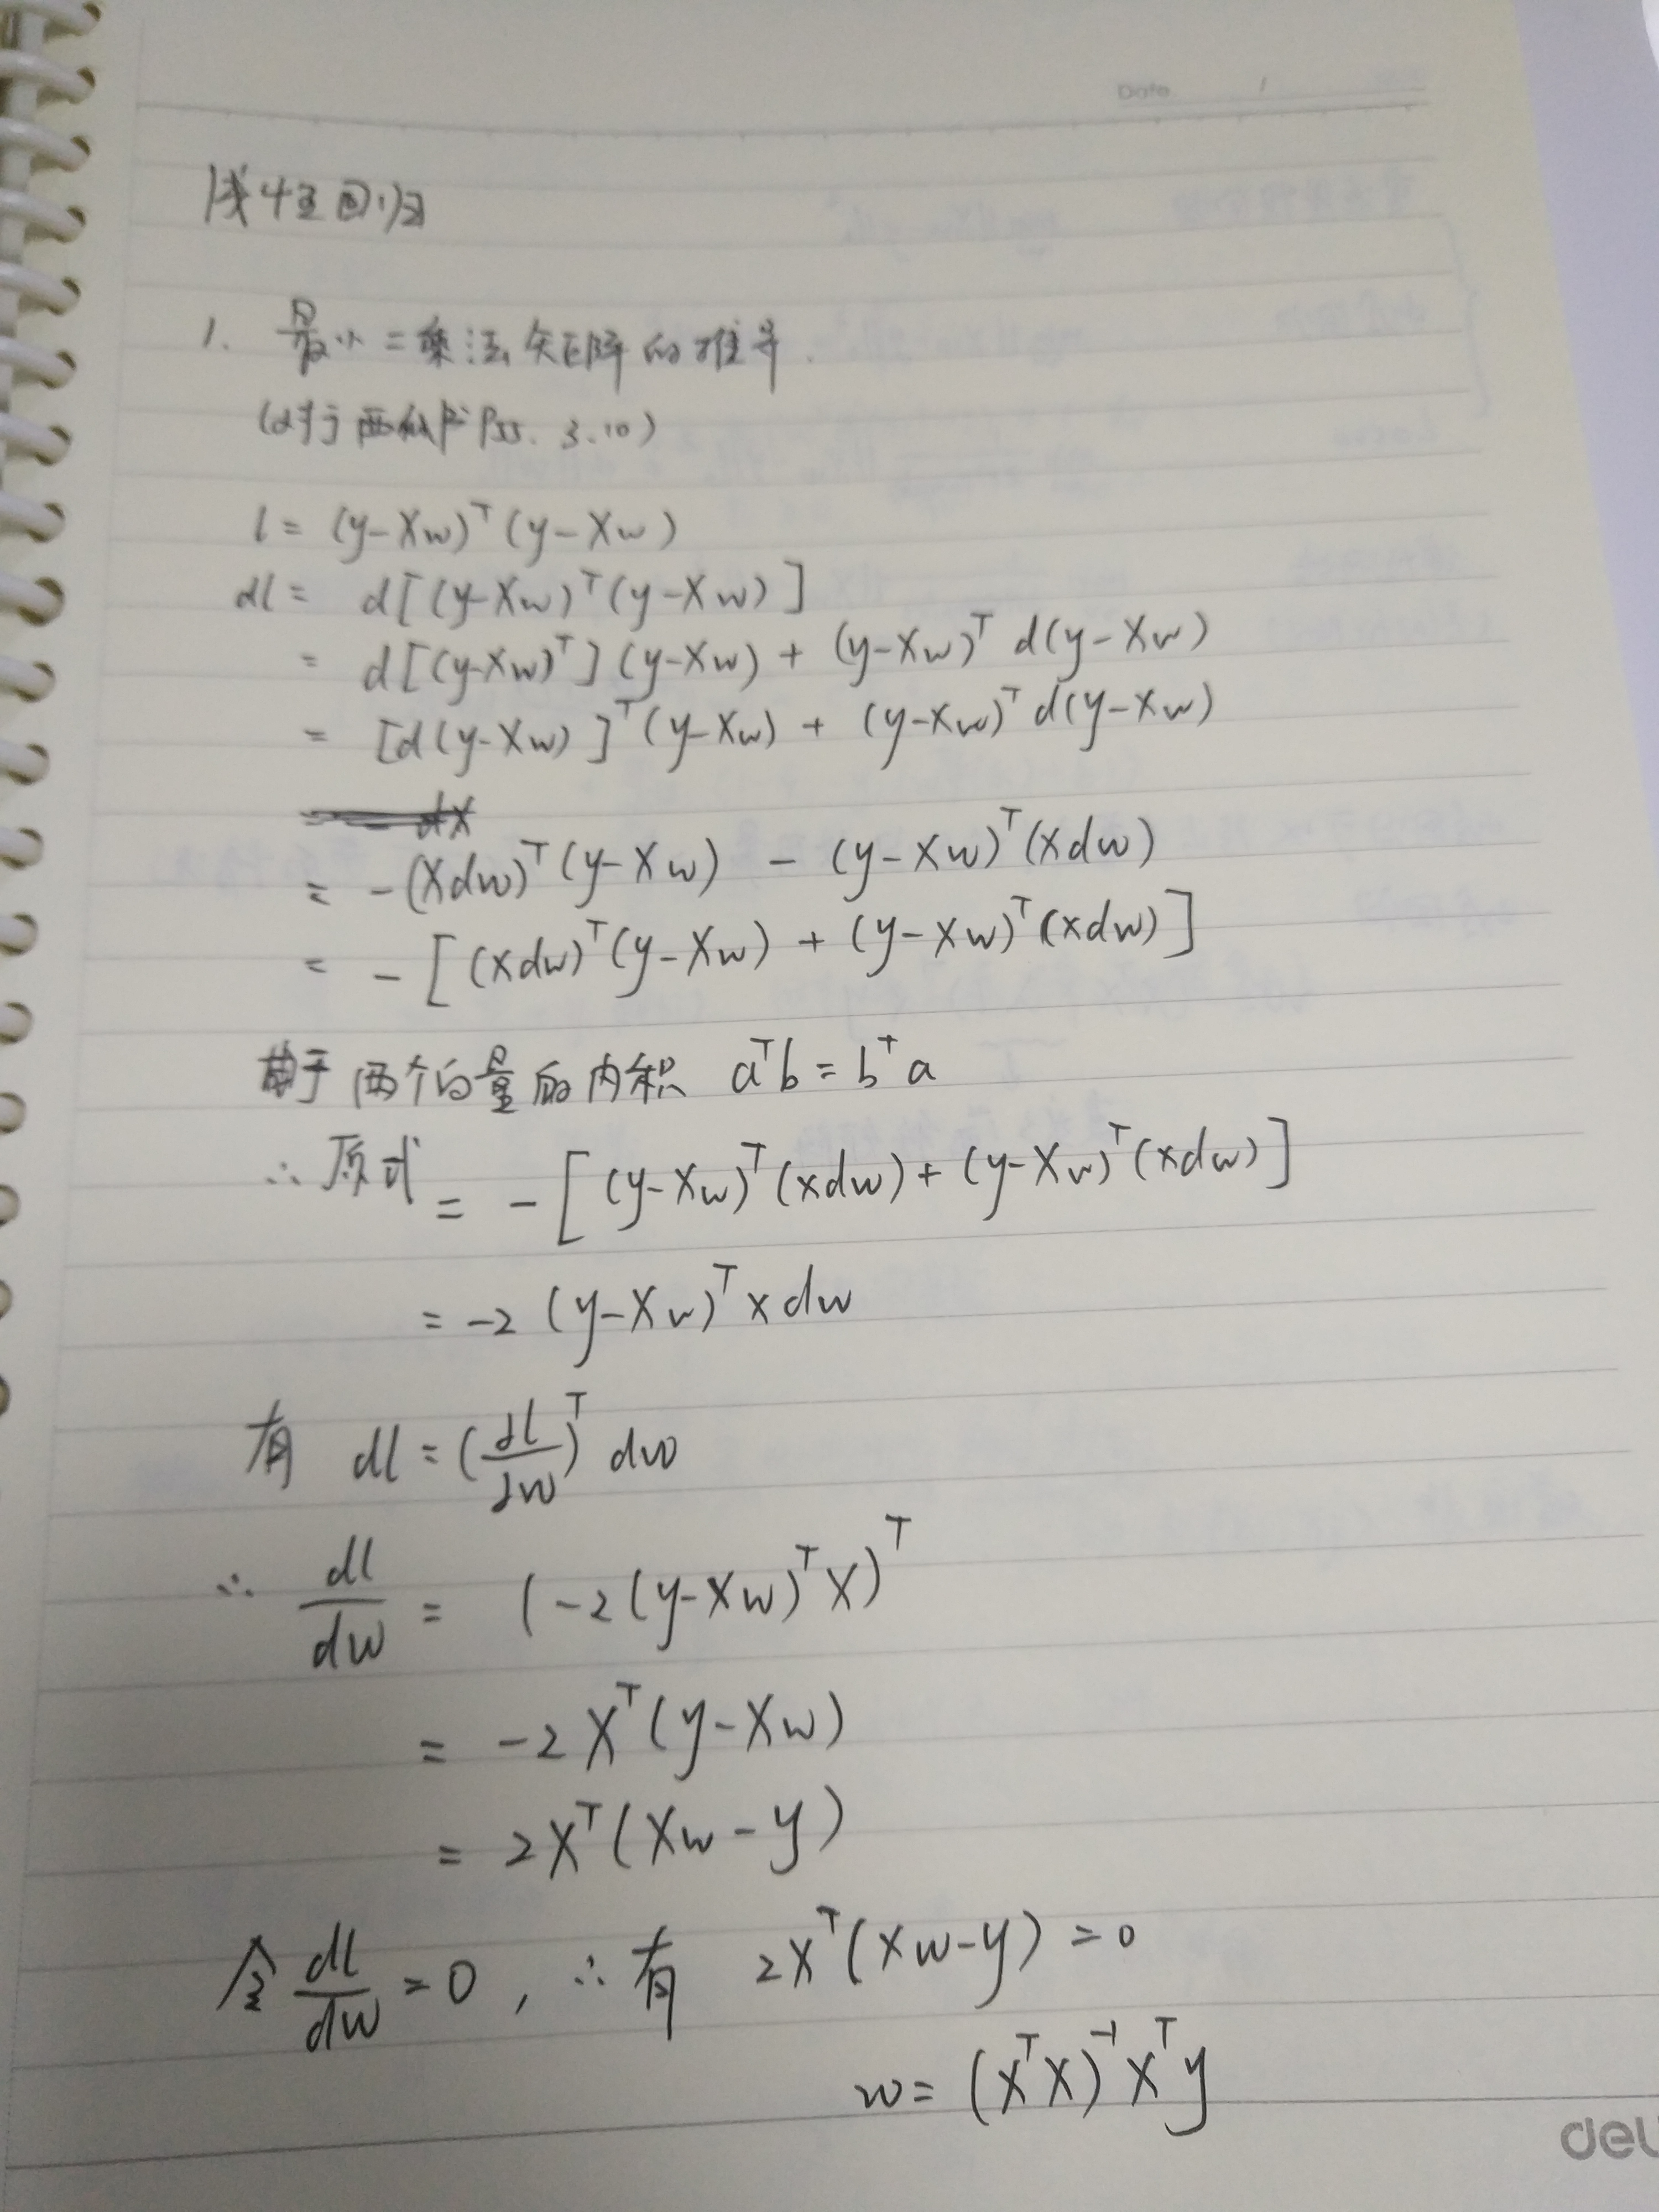 Date /
线性回归
1. 最小二乘法矩阵的推导.
(对于西瓜书 P55. 3.10)
l = (y-Xw)ᵀ(y-Xw)
dl = d[(y-Xw)ᵀ(y-Xw)]
= d[(y-Xw)ᵀ](y-Xw) + (y-Xw)ᵀ d(y-Xw)
= [d(y-Xw)]ᵀ(y-Xw) + (y-Xw)ᵀ d(y-Xw)
= -(Xdw)ᵀ(y-Xw) - (y-Xw)ᵀ(xdw)
= -[(xdw)ᵀ(y-Xw) + (y-Xw)ᵀ(xdw)]
由于两个向量的内积 aᵀb = bᵀa
∴ 原式 = -[(y-Xw)ᵀ(xdw) + (y-Xw)ᵀ(xdw)]
= -2(y-Xw)ᵀxdw
有 dl = (∂l/∂w)ᵀ dw
∴ dl/dw = (-2(y-Xw)ᵀX)ᵀ
= -2Xᵀ(y-Xw)
= 2Xᵀ(Xw-y)
令 dl/dw = 0, ∴ 有 2Xᵀ(Xw-y) = 0
w = (XᵀX)⁻¹Xᵀy